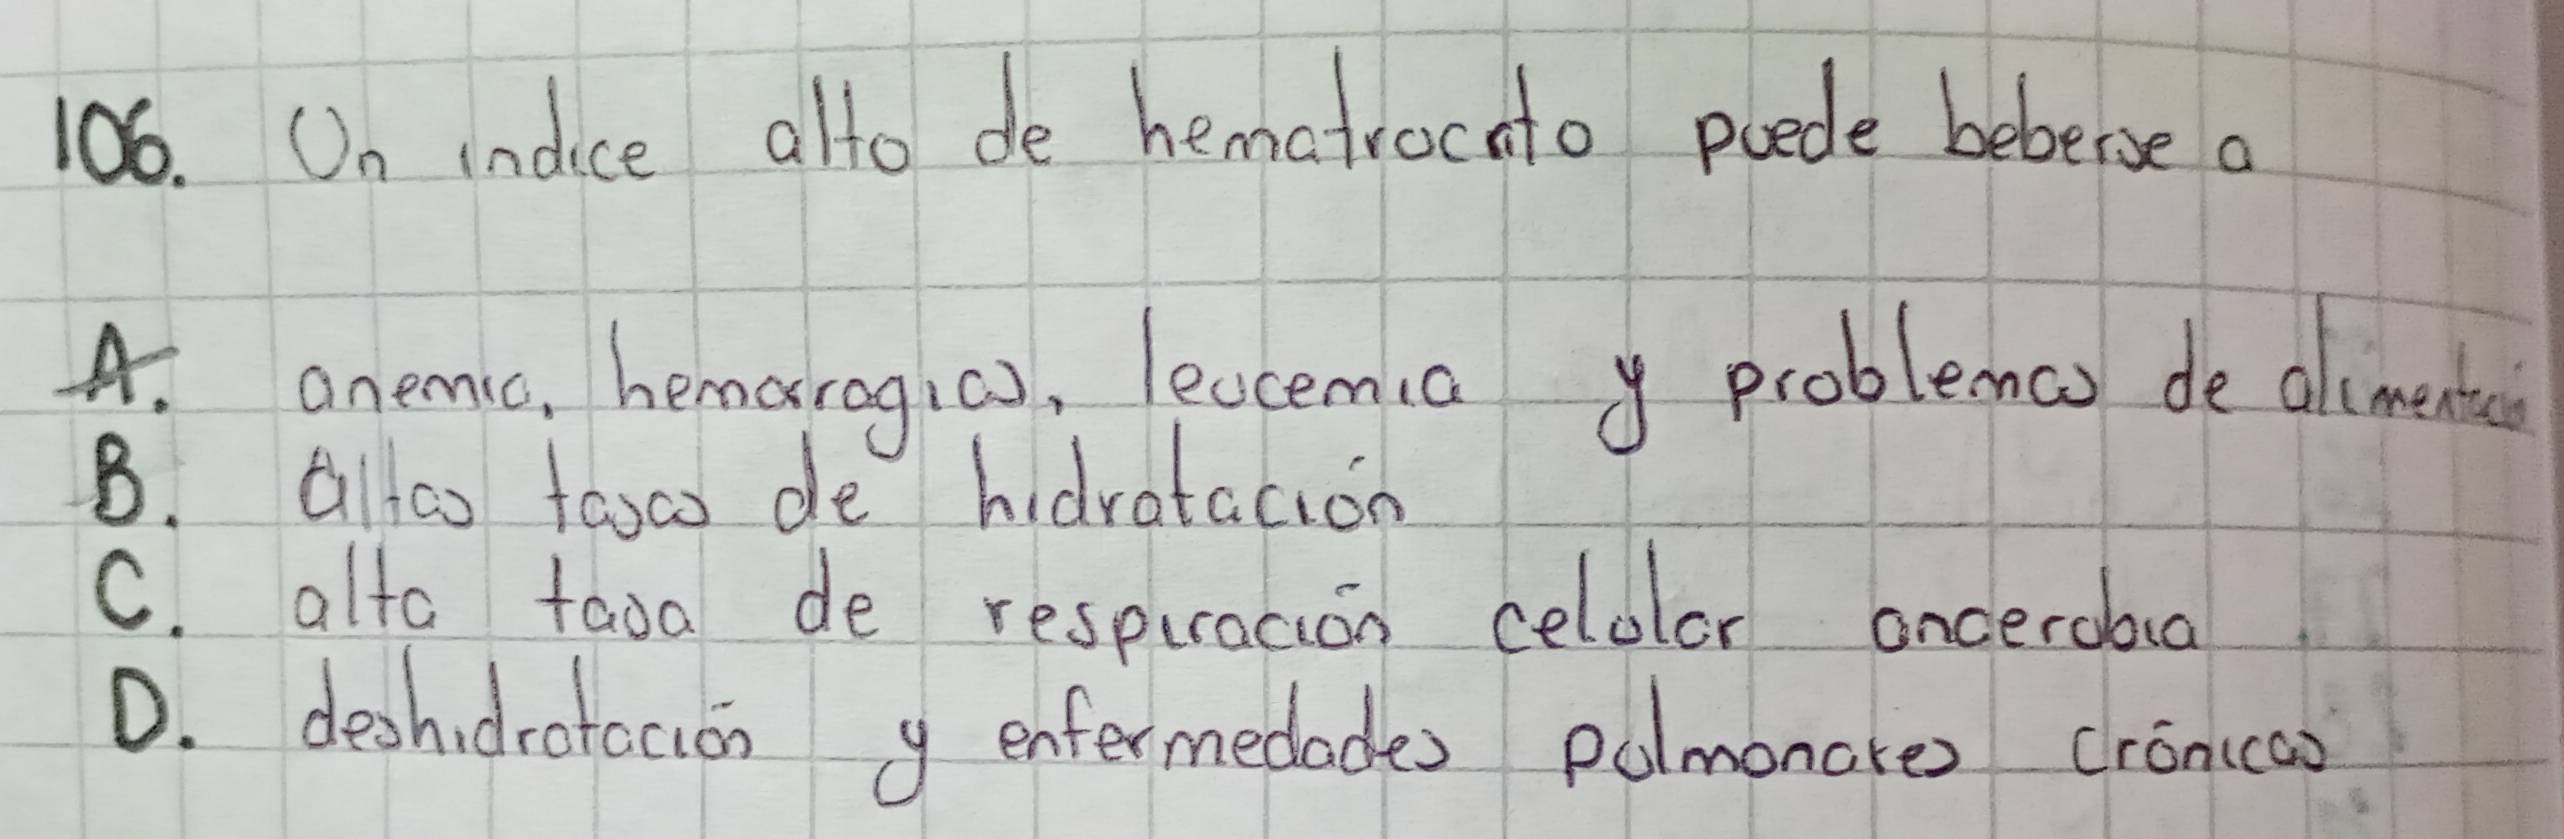 106. Un indice alto de hematrocito puede beberse a
A. anemia, hemorragias, leucemia y problemas de alimentación
B. altas tasas de hidratación
C. alta tasa de respiración celular anaerobia
D. deshidratación y enfermedades pulmonares crónicas